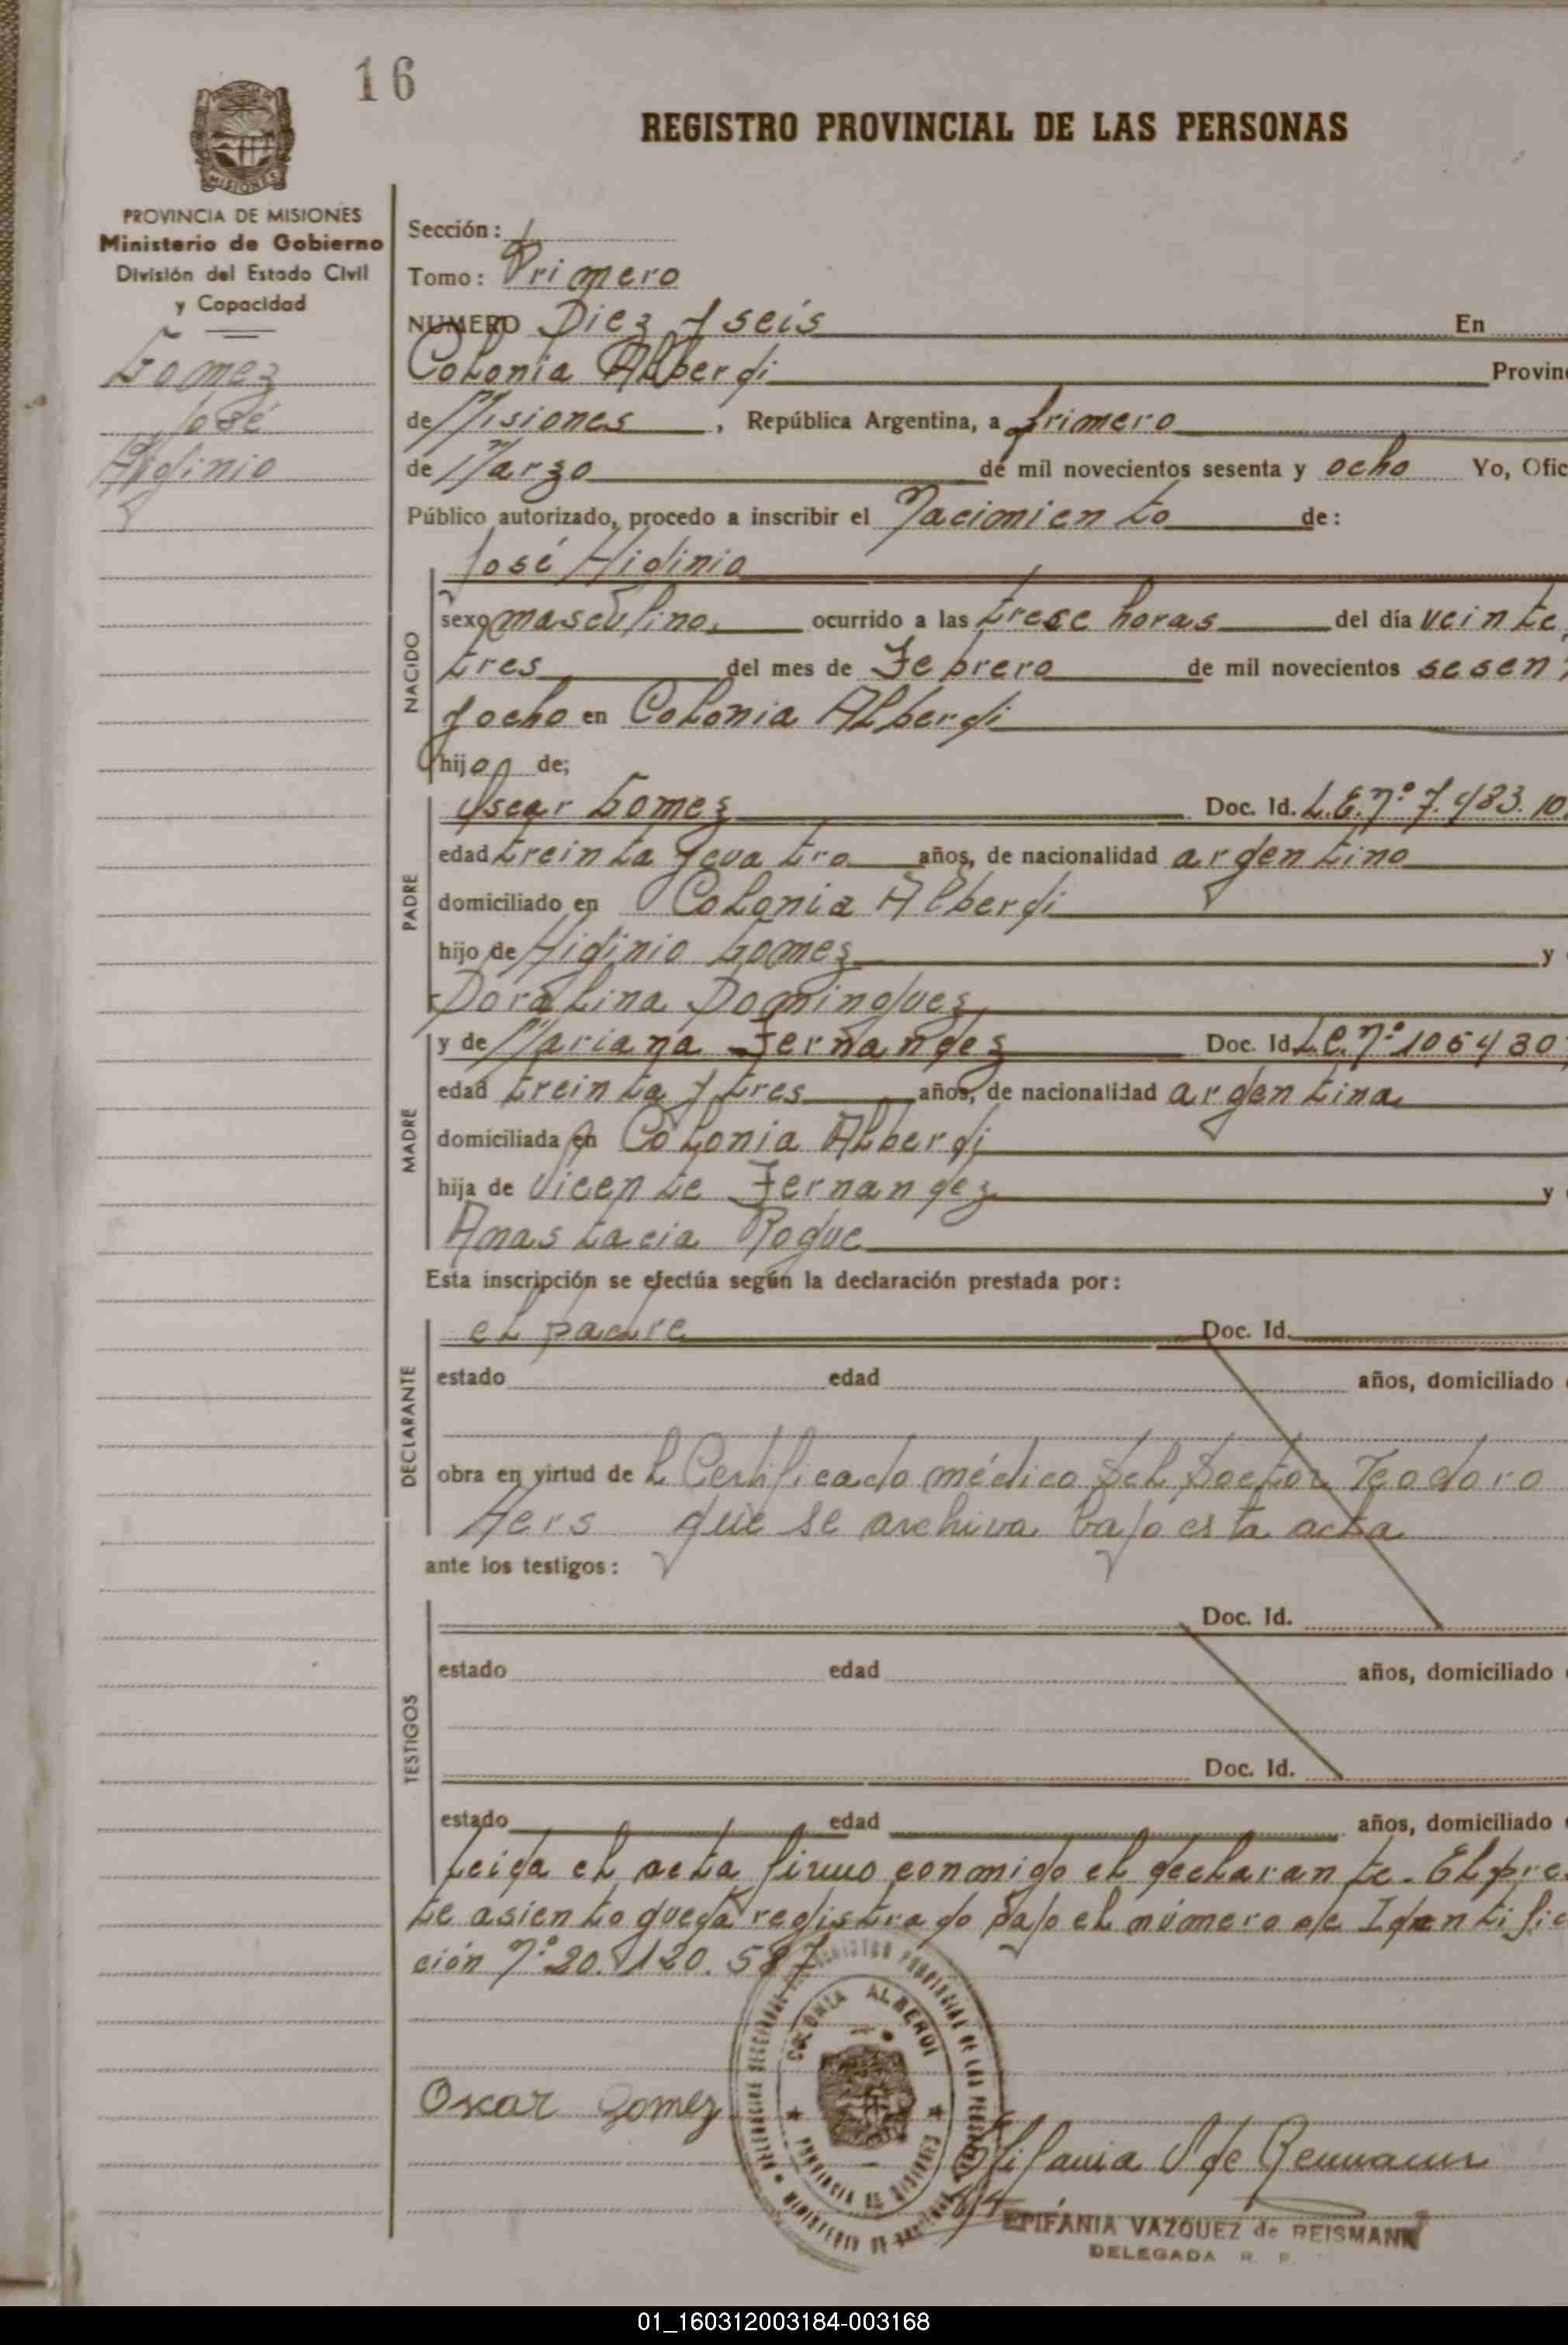 16
REGISTRO PROVINCIAL DE LAS PERSONAS
PROVINCIA DE MISIONES
Ministerio de Gobierno
División del Estado Civil
y Capacidad
Gomez
José
Higinio
Sección:
Tomo: Primero
NUMERO Diez y seis En
Colonia Alberdi Provin
de Misiones, República Argentina, a primero
de Marzo de mil novecientos sesenta y ocho Yo, Ofic
Público autorizado, procedo a inscribir el Nacimiento de:
José Higinio
NACIDO
sexo masculino, ocurrido a las trece horas del día veinte
tres del mes de Febrero de mil novecientos sesen
y ocho en Colonia Alberdi
hijo de;
PADRE
Oscar Gomez Doc. Id. L.E. Nº 7.483.10
edad treinta y cuatro años, de nacionalidad argentino
domiciliado en Colonia Alberdi
hijo de Higinio Gomez y
Doralina Domingues
MADRE
y de Mariana Fernandez Doc. Id. L.C. Nº 1065480
edad treinta y tres años, de nacionalidad argentina
domiciliada en Colonia Alberdi
hija de Vicente Fernandez y
Anastacia Roque
Esta inscripción se efectúa según la declaración prestada por:
DECLARANTE
el padre Doc. Id.
estado edad años, domiciliado
obra en virtud de L Certificado médico del Doctor Teodoro
que se archiva bajo esta acta
ante los testigos:
TESTIGOS
Doc. Id.
estado edad años, domiciliado
Doc. Id.
estado edad años, domiciliado
Leida el acta firmo conmigo el declarante. El pre
te asiento queda registrado bajo el número de Identific
ción Nº 20.120.587
COLONIA ALBERDI
PROVINCIA DE MISIONES
Oscar Gomez
Epifania V de
EPIFANIA VAZQUEZ de REISMANN
DELEGADA R. P.
01_160312003184-003168